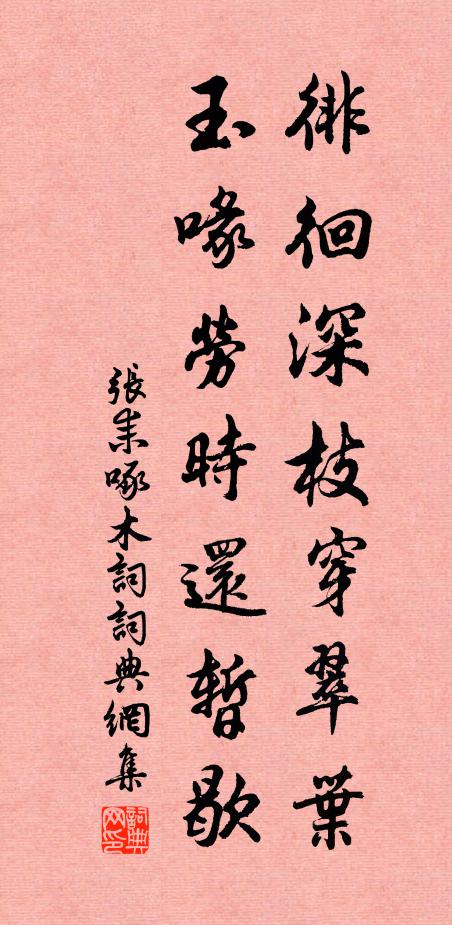 徘徊深枝穿翠葉
玉喙勞時還暫歇
張耒啄木詞詞典網集
詞典网印